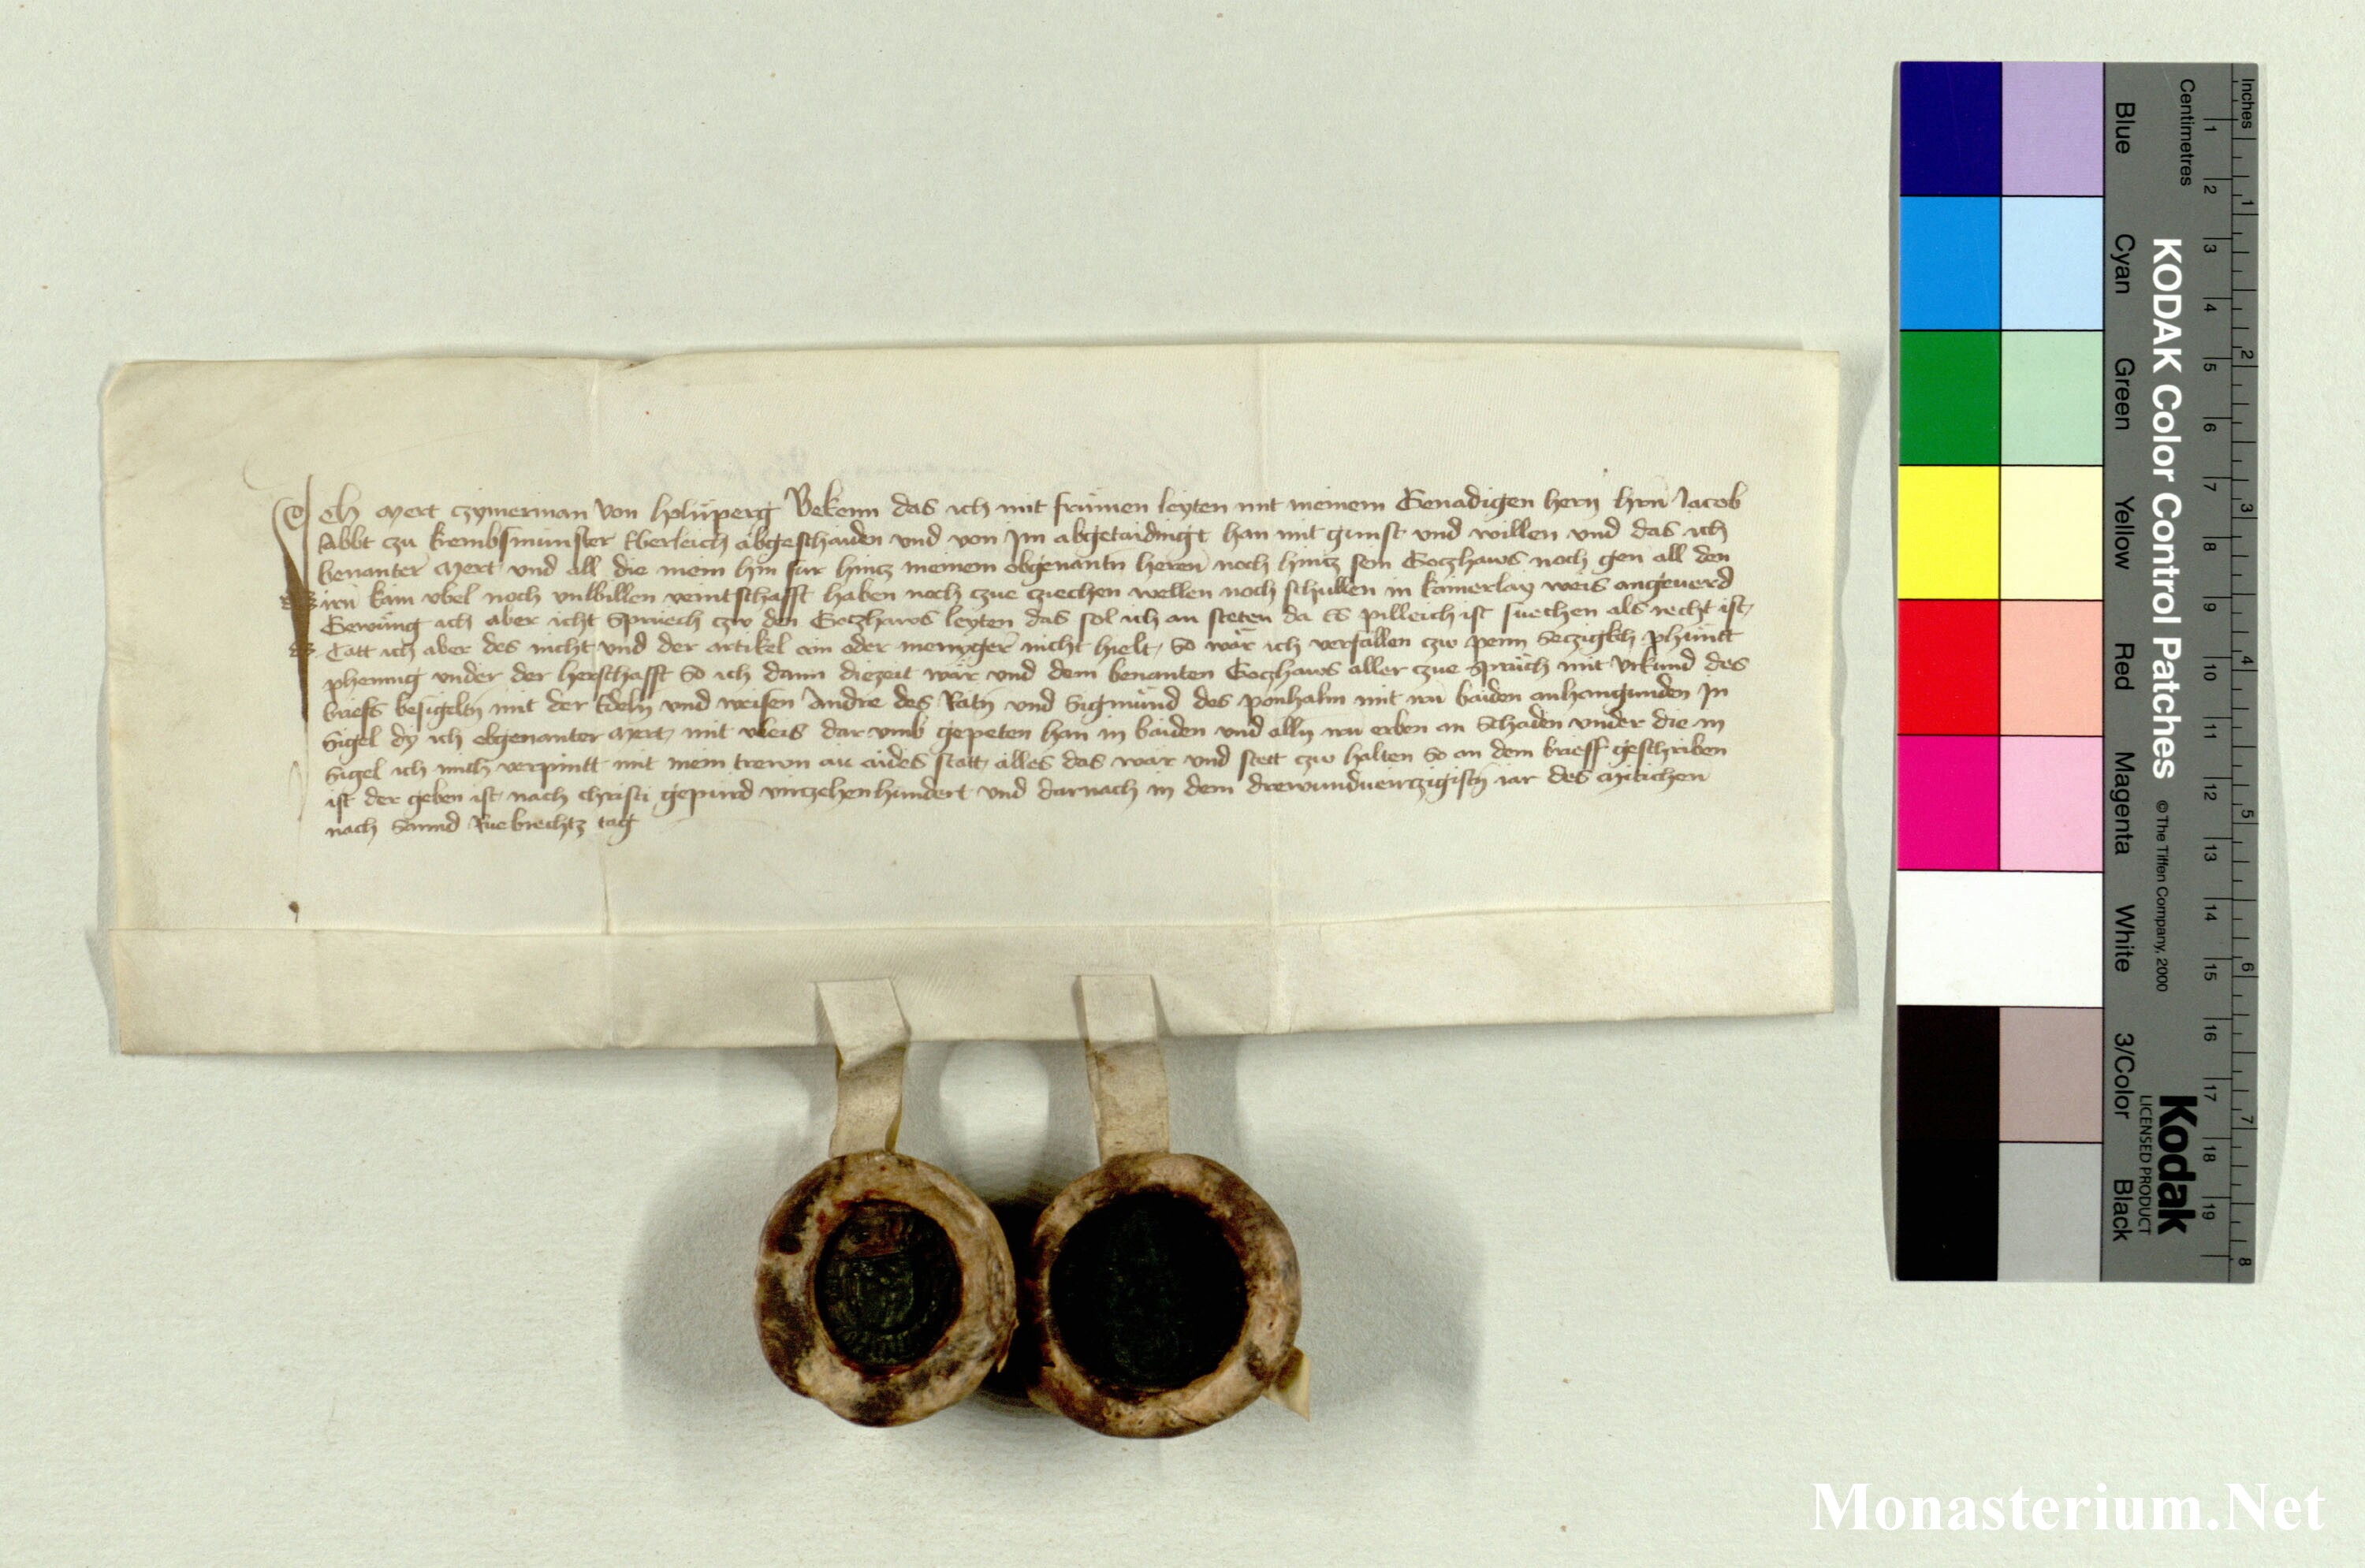 Ich Mert czymerman von hplüperg Bekenn das ich mit frümen leyten mit meinem Genadigen hern hrn Jacob
Abbt czu krembsmünster Erberleich abgeschaiden und von Im abgetaidingt han mit gunst und willen und das ich
benanter Mert und all die mein hin für hincz meinem obgenantn heren noch hincz sein Goczhaws noch gen all den
irn kain vbel noch vnbillen veintschafft haben noch czue cziechen wellen noch schullen in kainerlay weis angeuerd
Gewüng ich aber icht Sprüech czw den Goczhaws leyten das sol ich an steten da es pilleich ist suechen als recht ist
Tätt ich aber des nicht und der artikel ain oder menyger nicht hielt, So wär ich veruallen czw penn Seczigkch phüntt
phennig vnder der herschafft So ich dann diezeit wär vnd dem benanten Goczhaws aller czue Sprüch mit vrkund des
briefs besigeltn mit der Edeln vnd weisen Andre des Ratn vnd Sigmund des ponhalm mit irn baiden anhangunden In
Sigel dy ich obgenanter Mert mit vleis dar vmb gepeten han in baiden vnd alln irn erben an Schaden vnder die in
Sigel ich mich verpintt mit mein trewn an aides statt alles das war vnd stett czw halten So an dem brieff geschriben
ist der geben ist nach christi gepürd virczehenhundert vnd darnach in dem drewundvierczigistn iar des Mitichen
nach Sannd Ruebrechtz tag
KODAK Color Control Patches
© The Tiffen Company, 2000
Kodak
LICENSED PRODUCT
Inches
Centimetres
1 2 3 4 5 6 7 8 9 10 11 12 13 14 15 16 17 18 19
1 2 3 4 5 6 7 8
Blue Cyan Green Yellow Red Magenta White 3/Color Black
Monasterium.Net